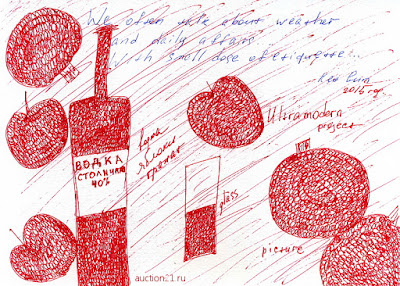 We often talk about weather
and daily affairs
with small dose of etiquette...
2016 год
Ultramodern
project
ВОДКА
СТОЛИЧНАЯ
40%
вода
яблоки
гранат
glass
picture
auction21.ru